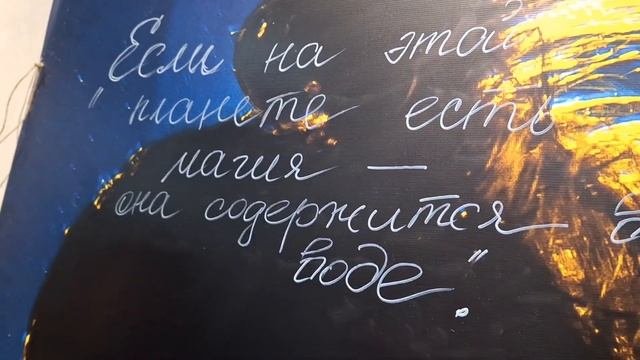 Если на этой
"планете есть
магия —
она содержится в
воде".